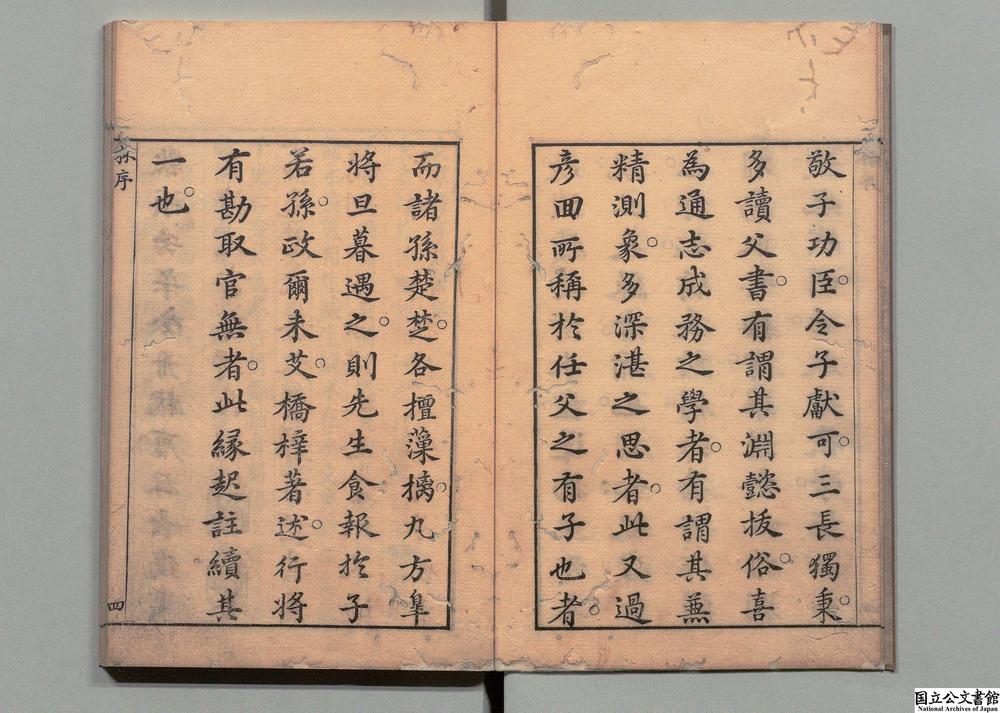 敬子功臣。令子獻可。三長獨秉。
多讀父書。有謂其淵懿拔俗。喜
為通志成務之學者。有謂其蕪
精測象。多深湛之思者。此又過
彦回所稱於任父之有子也者。
而諸孫楚楚。各擅藻摛。九方臯
将旦暮遇之。則先生食報於子
若孫。政爾未艾。橋梓著述。行将
有勘取官無者。此縁起註續其
一也。
序
四
国立公文書館
National Archives of Japan